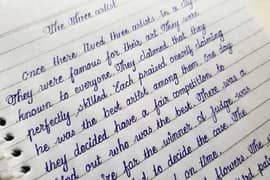 The Three artist
Once there lived three artists in a city
They were famous for their art. They were
known to everyone. They claimed that they
perfectly skilled. Each praised onerly claiming
he was the best artist among them. one day
they decided have a fair competition to
find out who was the best. There was a
for the winner of Judge was
to decide the case. The
on time.
flowers. The